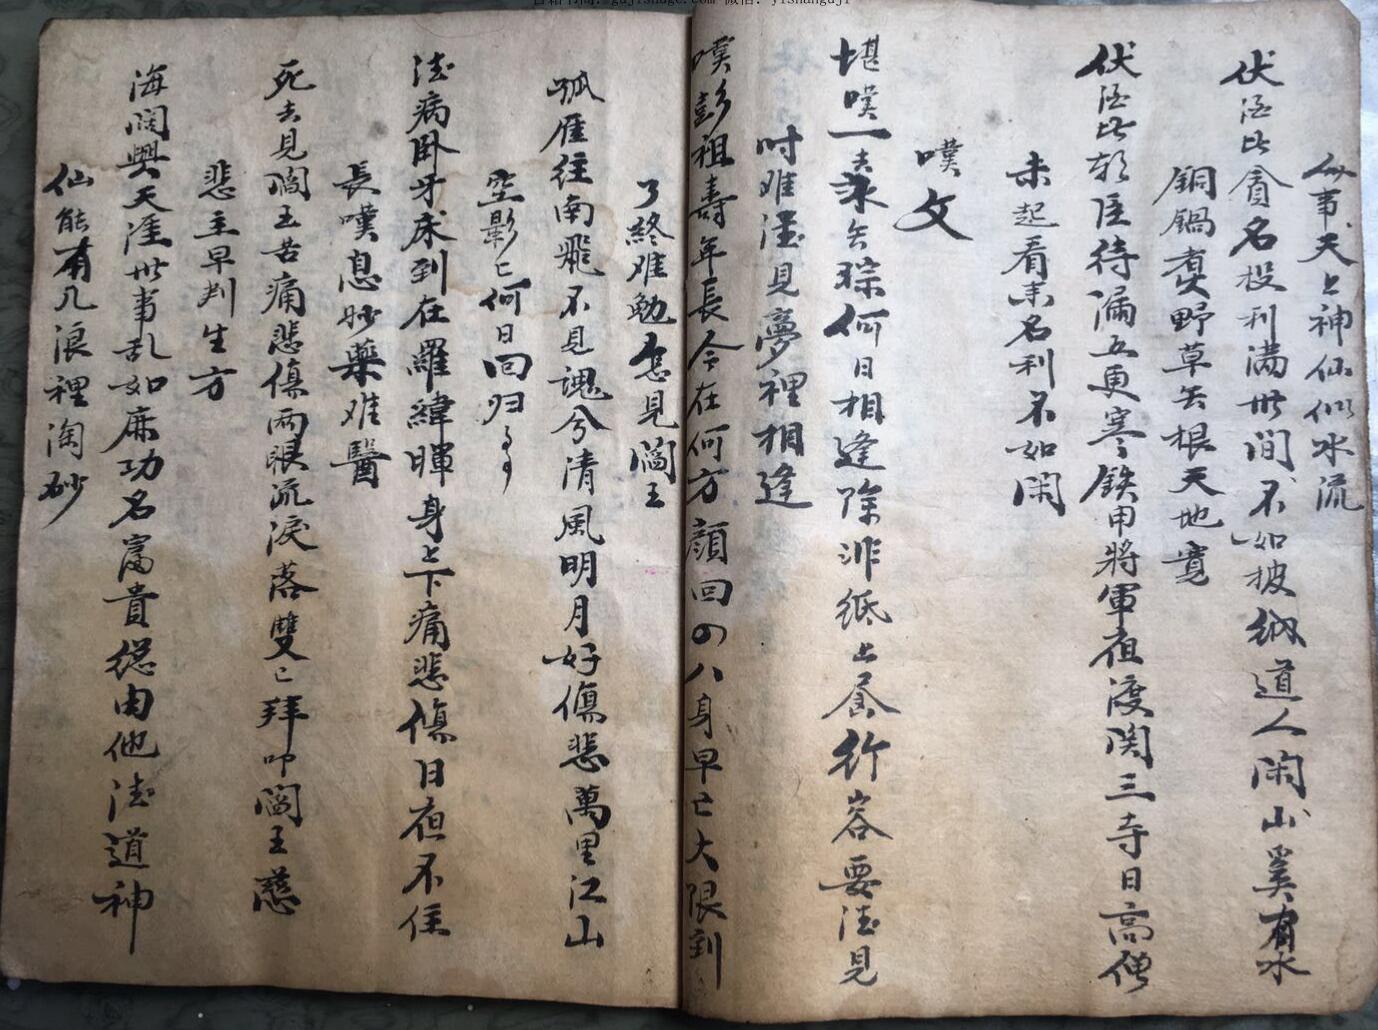 人事天上神仙似水流
伏酒比貪名投利满世间不如披衲道人闲山奚有水
銅鍋煮野草无根天地寬
伏酒比朝臣待漏五更寒鉄甲將軍夜渡関三寺日高僧
未起看来名利不如闲
嘆文
堪嘆一去永无踪何日相逢除非纸上養行容要法見
时难逢見夢裡相逢
嘆彭祖壽年長今在何方顔回四八身早亡大限到
了終难勉怎見閻王
孤雁往南飛不見魂兮清風明月好傷悲萬里江山
空影亡何日回归
法病卧牙床到在羅緯暉身上下痛悲傷日夜不住
長嘆息妙藥难醫
死去見閻王苦痛悲傷兩眼流淚落雙亡拜叩閻王慈
悲主早判生方
海阔興天涯世事乱如麻功名富貴總由他法道神
仙能有几浪裡淘砂